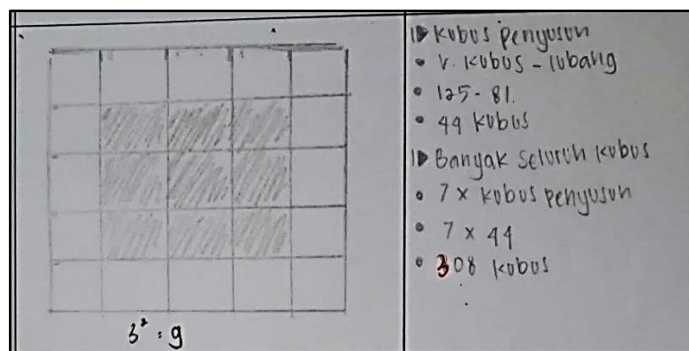 3² : 9
kubus penyusun
• V. kubus - lubang
• 125 - 81.
• 44 kubus
Banyak seluruh kubus
• 7 x kubus penyusun
• 7 x 44
• 308 kubus